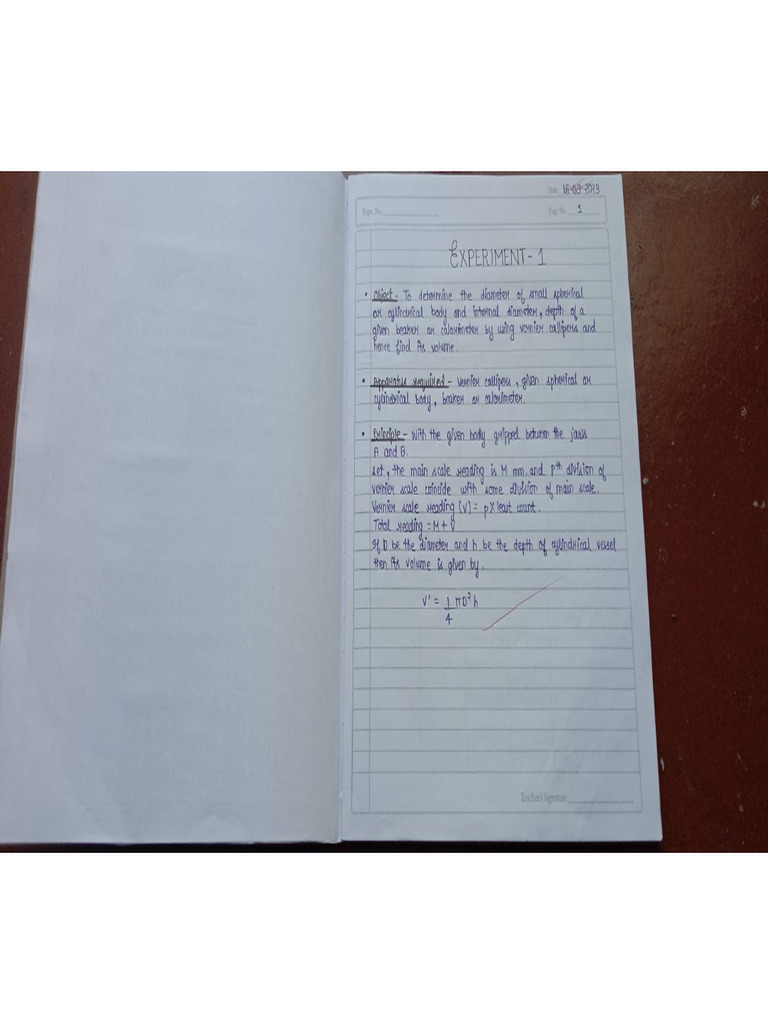 Date 16-09-2023
Expt. No.
Page No. 1
EXPERIMENT - 1
• Object - To determine the diameter of small spherical
or cylindrical body and internal diameter, depth of a
given beaker or calorimeter by using vernier callipers and
hence find its volume.
• Apparatus required - Vernier callipers, given spherical or
cylindrical body, beaker or calorimeter.
• Principle - With the given body gripped between the jaws
A and B.
Let, the main scale reading is M mm. and pth division of
vernier scale coincide with some division of main scale.
Vernier scale reading (V) = p x least count.
Total reading = M + V
If D be the diameter and h be the depth of cylindrical vessel
then its volume is given by.
V' = 1/4 πD²h
Teacher's Signature